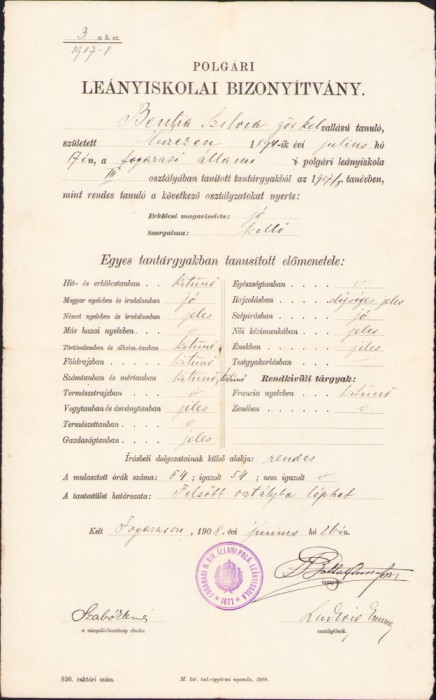 3 e. k. sz.
1907-8
POLGÁRI
LEÁNYISKOLAI BIZONYÍTVÁNY.
Bentia Silvia gör. kel. vallású tanuló,
született 1894-ik évi julius hó
17én, a fogarasi állami polgári leányiskola
III osztályában tanított tantárgyakból az 1907/8. tanévben,
mint rendes tanuló a következő osztályzatokat nyerte:
Erkölcsi magaviselete: jó
Szorgalma: kellő
Egyes tantárgyakban tanusított előmenetele:
Hit- és erkölcstanban kitünő
Magyar nyelvben és irodalomban jó
Német nyelvben és irodalomban jeles
Más hazai nyelvekben
Történelemben és alkotm.-tanban kitünő
Földrajzban kitünő
Számtanban és mértanban kitünő, kitünő
Természetrajzban
Vegytanban és ásványtanban jeles
Természettanban
Gazdaságtanban jeles
Egészségtanban
Rajzolásban elégséges jeles
Szépírásban jó
Női kézimunkában jeles
Énekben jeles
Testgyakorlásban
Rendkívüli tárgyak:
Francia nyelvben kitünő
Zenében
Írásbeli dolgozatainak külső alakja: rendes
A mulasztott órák száma: 54; igazolt 54; nem igazolt
A tantestület határozata: Felsőbb osztályba léphet
Kelt Fogarason, 1908. évi junius hó 26-án.
FOGARASI M. KIR. ÁLLAMI POLG. LEÁNYISKOLA
1877
igazgató
a vizsgáló-bizottság elnöke.
osztályfőnök.
836. raktári szám.
M. kir. tud.-egyetemi nyomda. 1908.